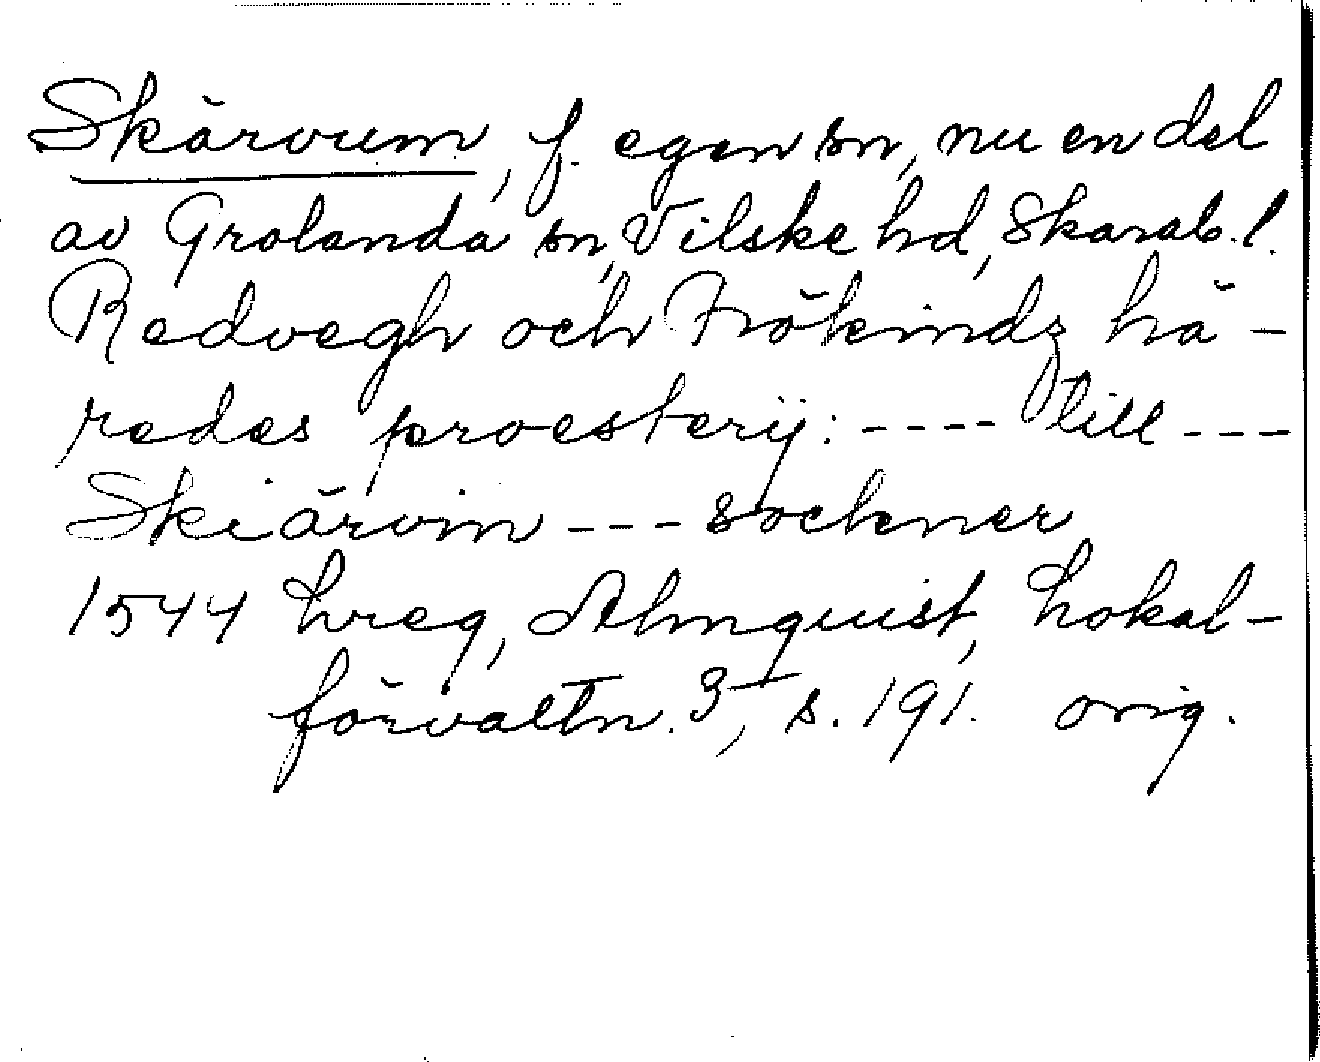 Skärvum, f. egen sn, nu en del
av Grolanda sn, Vilske hd, Skarab. l.
Redvegh och Frökindz hä-
redes proesterij: ---- till ---
Skiärvin --- sockner
1544 hreg, Almquist, Lokal-
förvaltn. 3, s. 191. orig.